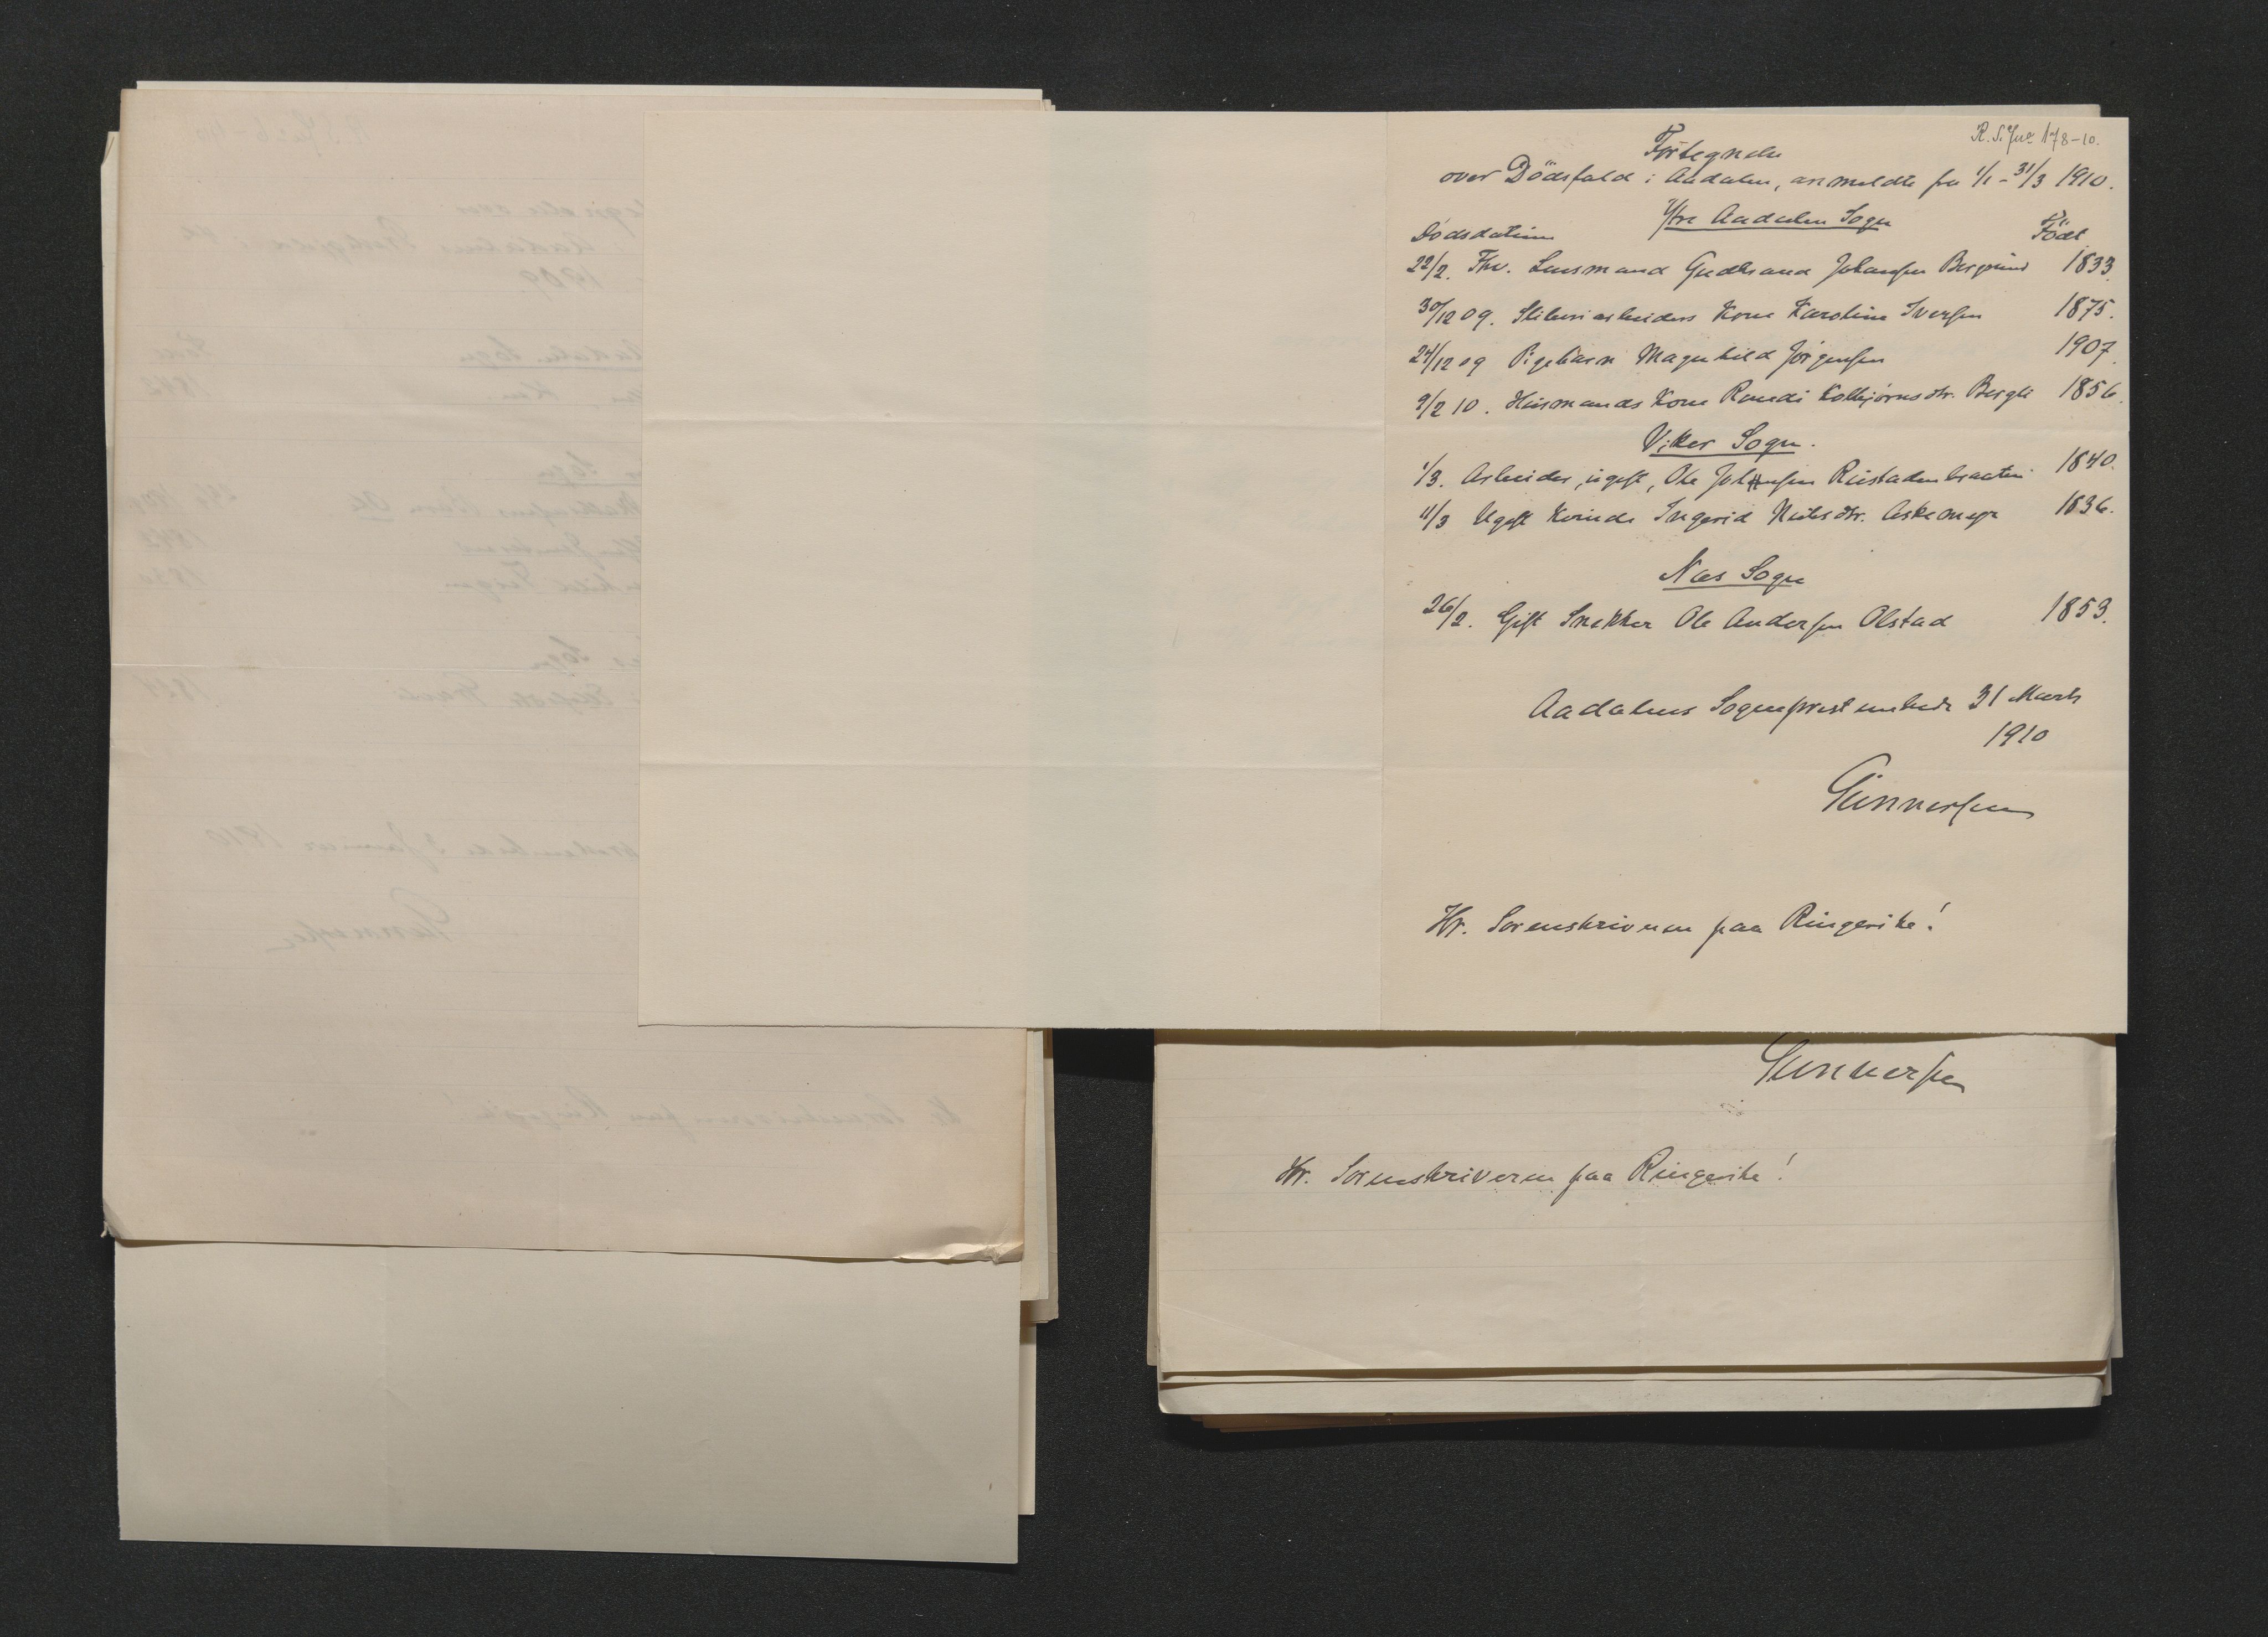 R. S. Jno 178-10.
Fortegnelse
over Dödsfald i Aadalen, anmeldte fra 1/1 - 31/3 1910.
Ytre Aadalen Sogn
Dødsdatum Født
22/2. Fhv. Lensmand Gudbrand Johansen Bergsund 1833.
30/12 09. Sliberiarbeiders Kone Karoline Iversen 1875.
24/12 09 Pigebarn Magnhild Jörgensen 1907.
9/2 10. Husmands Kone Randi Kolbjörnsdtr. Bergli 1856.
Viker Sogn.
1/3. Arbeider, ugift, Ole Johansen Rustadenbraaten 1840.
11/3 Ugift Kvinde Ingerid Nielsdtr. Askemyr 1836.
Næs Sogn
26/2. Gift Snekker Ole Andersen Olstad 1853.
Aadalens Sogneprestembede 31 Marts
1910
Gunnersen
Hr. Sorenskriveren paa Ringerike!
Gunnersen
Hr. Sorenskriveren paa Ringerike!